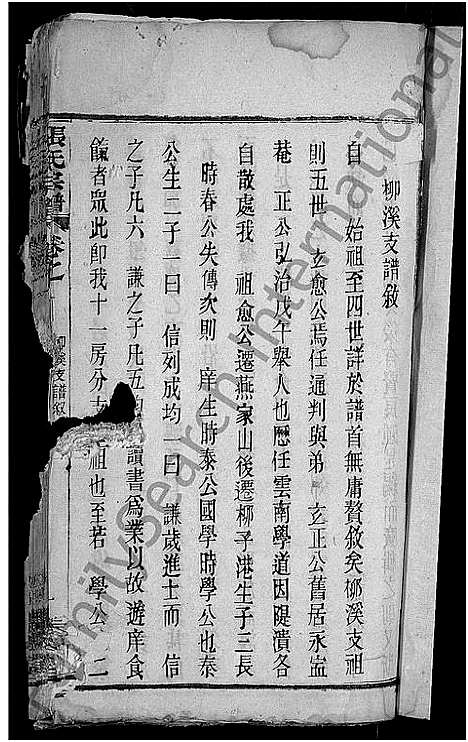 柳溪支譜敘
自 始祖至四世詳於譜首無庸贅敘矣柳溪支祖
則五世 玄愈公焉任通判與弟 玄正公舊居永盐
菴 正公弘治戊午舉人也歷任雲南學道因隄潰各
自散處我 祖愈公遷燕家山後遷柳子港生子三長
時春公失傳次則 庠生時泰公國學時學公也泰
公生二子一曰 信列成均一曰 謙歲進士而 信
之子凡六 謙之子凡五 讀書為業以故遊庠食
餼者眾此即我十一房分支 祖也至若 學公 二
張氏宗譜 卷之
柳溪支譜敘
FamilySearch International